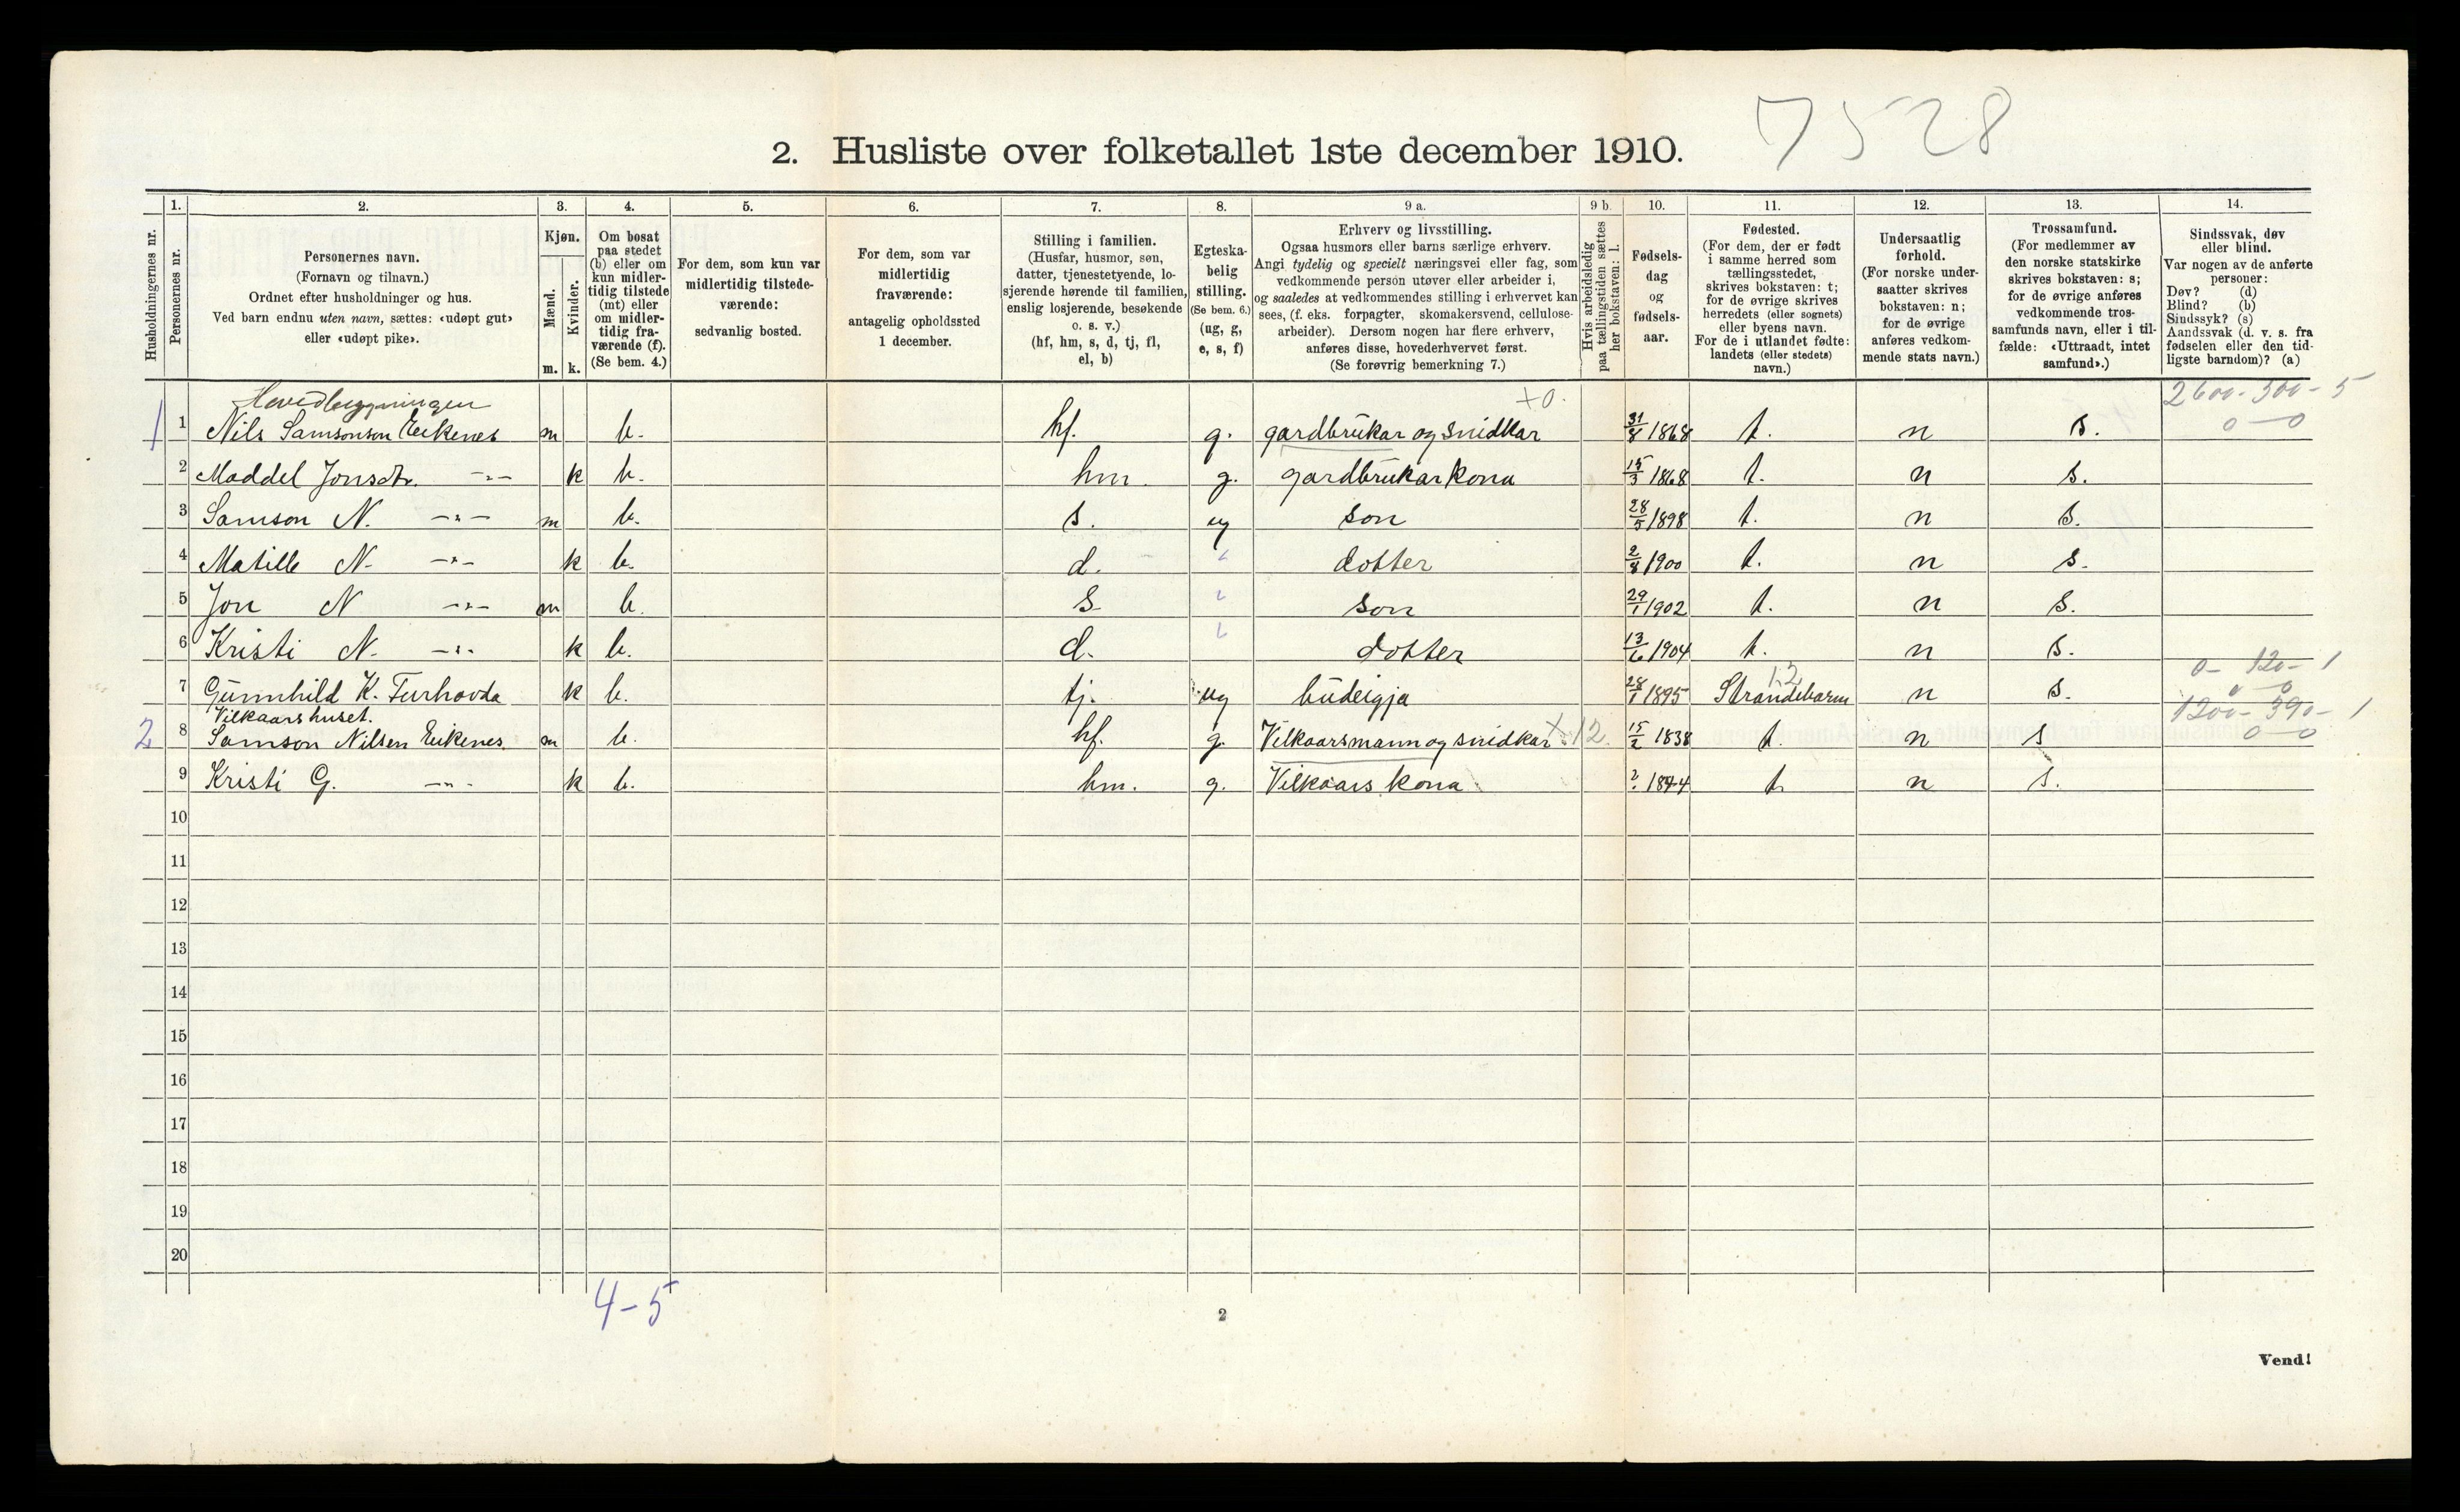 7528
2. Husliste over folketallet 1ste december 1910.
Husholdningernes nr.
1.
Personernes nr.
2.
Personernes navn.
(Fornavn og tilnavn.)
Ordnet efter husholdninger og hus.
Ved barn endnu uten navn, sættes: «udøpt gut»
eller «udøpt pike».
3.
Kjøn.
Mænd.
Kvinder.
m. k.
4.
Om bosat
paa stedet
(b) eller om
kun midler-
tidig tilstede
(mt) eller
om midler-
tidig fra-
værende (f).
(Se bem. 4.)
5.
For dem, som kun var
midlertidig tilstede-
værende:
sedvanlig bosted.
6.
For dem, som var
midlertidig
fraværende:
antagelig opholdssted
1 december.
7.
Stilling i familien.
(Husfar, husmor, søn,
datter, tjenestetyende, lo-
sjerende hørende til familien,
enslig losjerende, besøkende
o. s. v.)
(hf, hm, s, d, tj, fl,
el, b)
8.
Egteska-
belig
stilling.
(Se bem. 6.)
(ug, g,
e, s, f)
9 a.
Erhverv og livsstilling.
Ogsaa husmors eller barns særlige erhverv.
Angi tydelig og specielt næringsvei eller fag, som
vedkommende person utøver eller arbeider i,
og saaledes at vedkommendes stilling i erhvervet kan
sees, (f. eks. forpagter, skomakersvend, cellulose-
arbeider). Dersom nogen har flere erhverv,
anføres disse, hovederhvervet først.
(Se forøvrig bemerkning 7.)
9 b.
Hvis arbeidsledig
paa tællingstiden sættes
her bokstaven: l.
10.
Fødsels-
dag
og
fødsels-
aar.
11.
Fødested.
(For dem, der er født
i samme herred som
tællingsstedet,
skrives bokstaven: t;
for de øvrige skrives
herredets (eller sognets)
eller byens navn.
For de i utlandet fødte:
landets (eller stedets)
navn.)
12.
Undersaatlig
forhold.
(For norske under-
saatter skrives
bokstaven: n;
for de øvrige
anføres vedkom-
mende stats navn.)
13.
Trossamfund.
(For medlemmer av
den norske statskirke
skrives bokstaven: s;
for de øvrige anføres
vedkommende tros-
samfunds navn, eller i til-
fælde: «Uttraadt, intet
samfund».)
14.
Sindssvak, døv
eller blind.
Var nogen av de anførte
personer:
Døv? (d)
Blind? (b)
Sindssyk? (s)
Aandssvak (d. v. s. fra
fødselen eller den tid-
ligste barndom)? (a)
Hovedbygningen +0. 2600-500-5
1 1 Nils Samsonson Eikenes m b. hf. g. gardbrukar og snidkar 31/8 1868 t. n s. 0-0
2 Maddel Jonsdtr. -"- k b. hm. g. gardbrukarkona 15/3 1868 t. n s.
3 Samson N. -"- m b. s. ug son 28/5 1898 t. n s.
4 Matille N. -"- k b. d. " dotter 2/8 1900 t. n s.
5 Jon N -"- m b. s. " son 29/1 1902 t. n s.
6 Kristi N. -"- k b. d. " dotter 13/6 1904 t. n s.
12 0-120-1
7 Gunnhild K. Furhovda k b. tj. ug budeigja 28/1 1895 Strandebarm n s. 0-0
Vilkaarshuset. 1200-390-1
2 8 Samson Nilsen Eikenes m b. hf. g. Vilkaarsmann og snidkar X12. 15/2 1838 t. n s 0-0
9 Kristi G. -"- k b. hm. g. Vilkaars kona ? 1844 t. n s.
10
11
12
13
14
15
16
17
18
19
20
4-5
2
Vend!